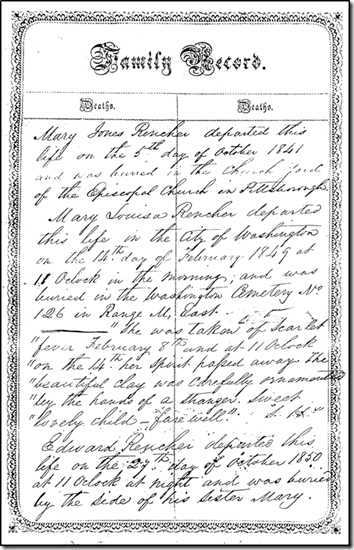 Family Record.
Deaths. Deaths.
Mary Jones Rencher departed this
life on the 5th day of October 1841
and was buried in the Church yard
of the Episcopal Church in Pittsborough
Mary Louisa Rencher departed
this life in the City of Washington
on the 14th day of February 1849 at
11 Oclock in the morning; and was
buried in the Washington Cemetery No
126 in Range M, East.
"She was taken of Scarlet
"fever February 8th and at 11 Oclock
"on the 14th her spirit passed away. The
"beautiful clay was carefully ornamented
"by the hands of a stranger. Sweet
"lovely child - farewell".
Edward Rencher departed this
life on the 27th day of October 1850
at 11 Oclock at night and was buried
by the side of his sister Mary.